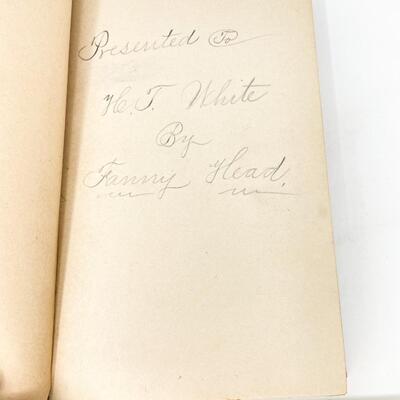 Presented To
H. T. White
By
Fanny Head.